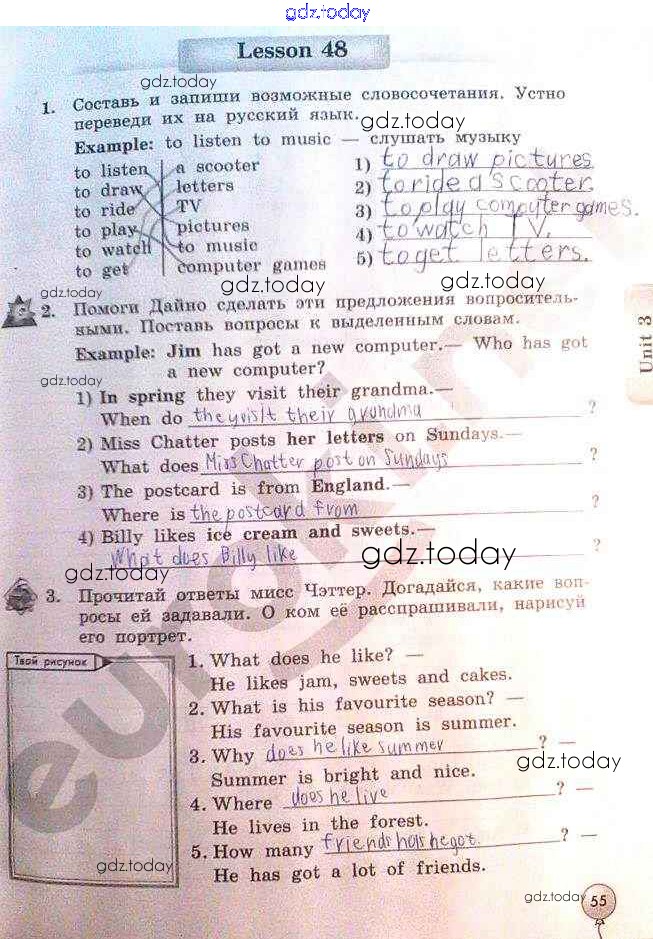 gdz.today
Lesson 48
gdz.today
1. Составь и запиши возможные словосочетания. Устно
переведи их на русский язык.
gdz.today
Example: to listen to music — слушать музыку
to listen a scooter 1) to draw pictures
to draw letters 2) to ride a scooter.
to ride TV 3) to play computer games.
to play pictures 4) to watch TV.
to watch to music 5) to get letters.
to get computer games
gdz.today gdz.today gdz.today
2. Помоги Дайно сделать эти предложения вопроситель-
ными. Поставь вопросы к выделенным словам.
Unit 3
Example: Jim has got a new computer.— Who has got
a new computer?
gdz.today
1) In spring they visit their grandma.—
When do they visit their grundma ?
2) Miss Chatter posts her letters on Sundays.—
What does Miss Chatter post on Sundays ?
3) The postcard is from England.—
Where is the postcard from ?
4) Billy likes ice cream and sweets.—
What does Billy like ?
gdz.today
gdz.today
3. Прочитай ответы мисс Чэттер. Догадайся, какие воп-
росы ей задавали. О ком её расспрашивали, нарисуй
его портрет.
Твой рисунок
1. What does he like? —
He likes jam, sweets and cakes.
2. What is his favourite season? —
His favourite season is summer.
3. Why does he like summer ? —
gdz.today
Summer is bright and nice.
4. Where does he live ? —
He lives in the forest.
5. How many friends has he got ? —
gdz.today
He has got a lot of friends.
gdz.today
55